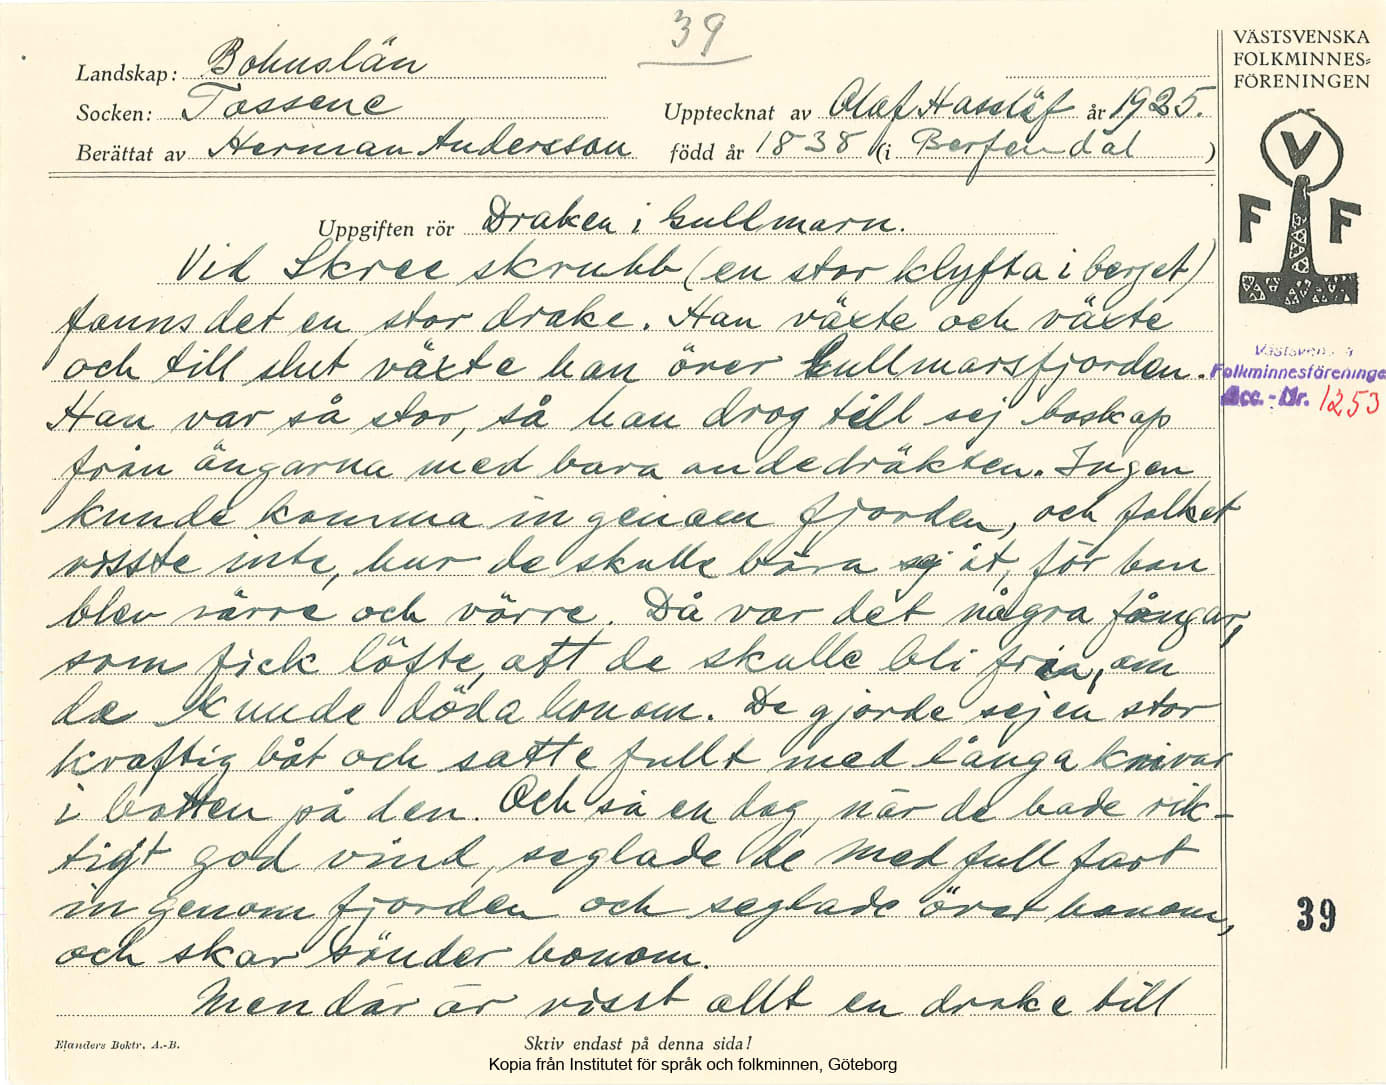 39
Landskap: Bohuslän
Socken: Tossene
Upptecknat av Olof Hasslöf år 1925.
Berättat av Herman Andersson född år 1838 (i Berfendal)
VÄSTSVENSKA
FOLKMINNES-
FÖRENINGEN
V
F F
Uppgiften rör Draken i Gullmarn.
Vid Skree skrubb (en stor klyfta i berget)
fanns det en stor drake. Han växte och växte
och till slut växte han över Gullmarsfjorden.
Han var så stor, så han drog till sej boskap
från ängarna med bara andedräkten. Ingen
kunde komma in genom fjorden, och folket
visste inte, hur de skulle bära sej åt, för han
blev värre och värre. Då var det några fångar,
som fick löfte, att de skulle bli fria, om
de kunde döda honom. De gjorde sej en stor
kraftig båt och satte fullt med långa knivar
i botten på den. Och så en dag, när de hade rik-
tigt god vind, seglade de med full fart
in genom fjorden och seglade över honom,
och skar sönder honom.
Men där är visst allt en drake till
Västsvenska
Folkminnesföreninge
Acc.-Nr. 1253
39
Elanders Boktr. A.-B.
Skriv endast på denna sida!
Kopia från Institutet för språk och folkminnen, Göteborg